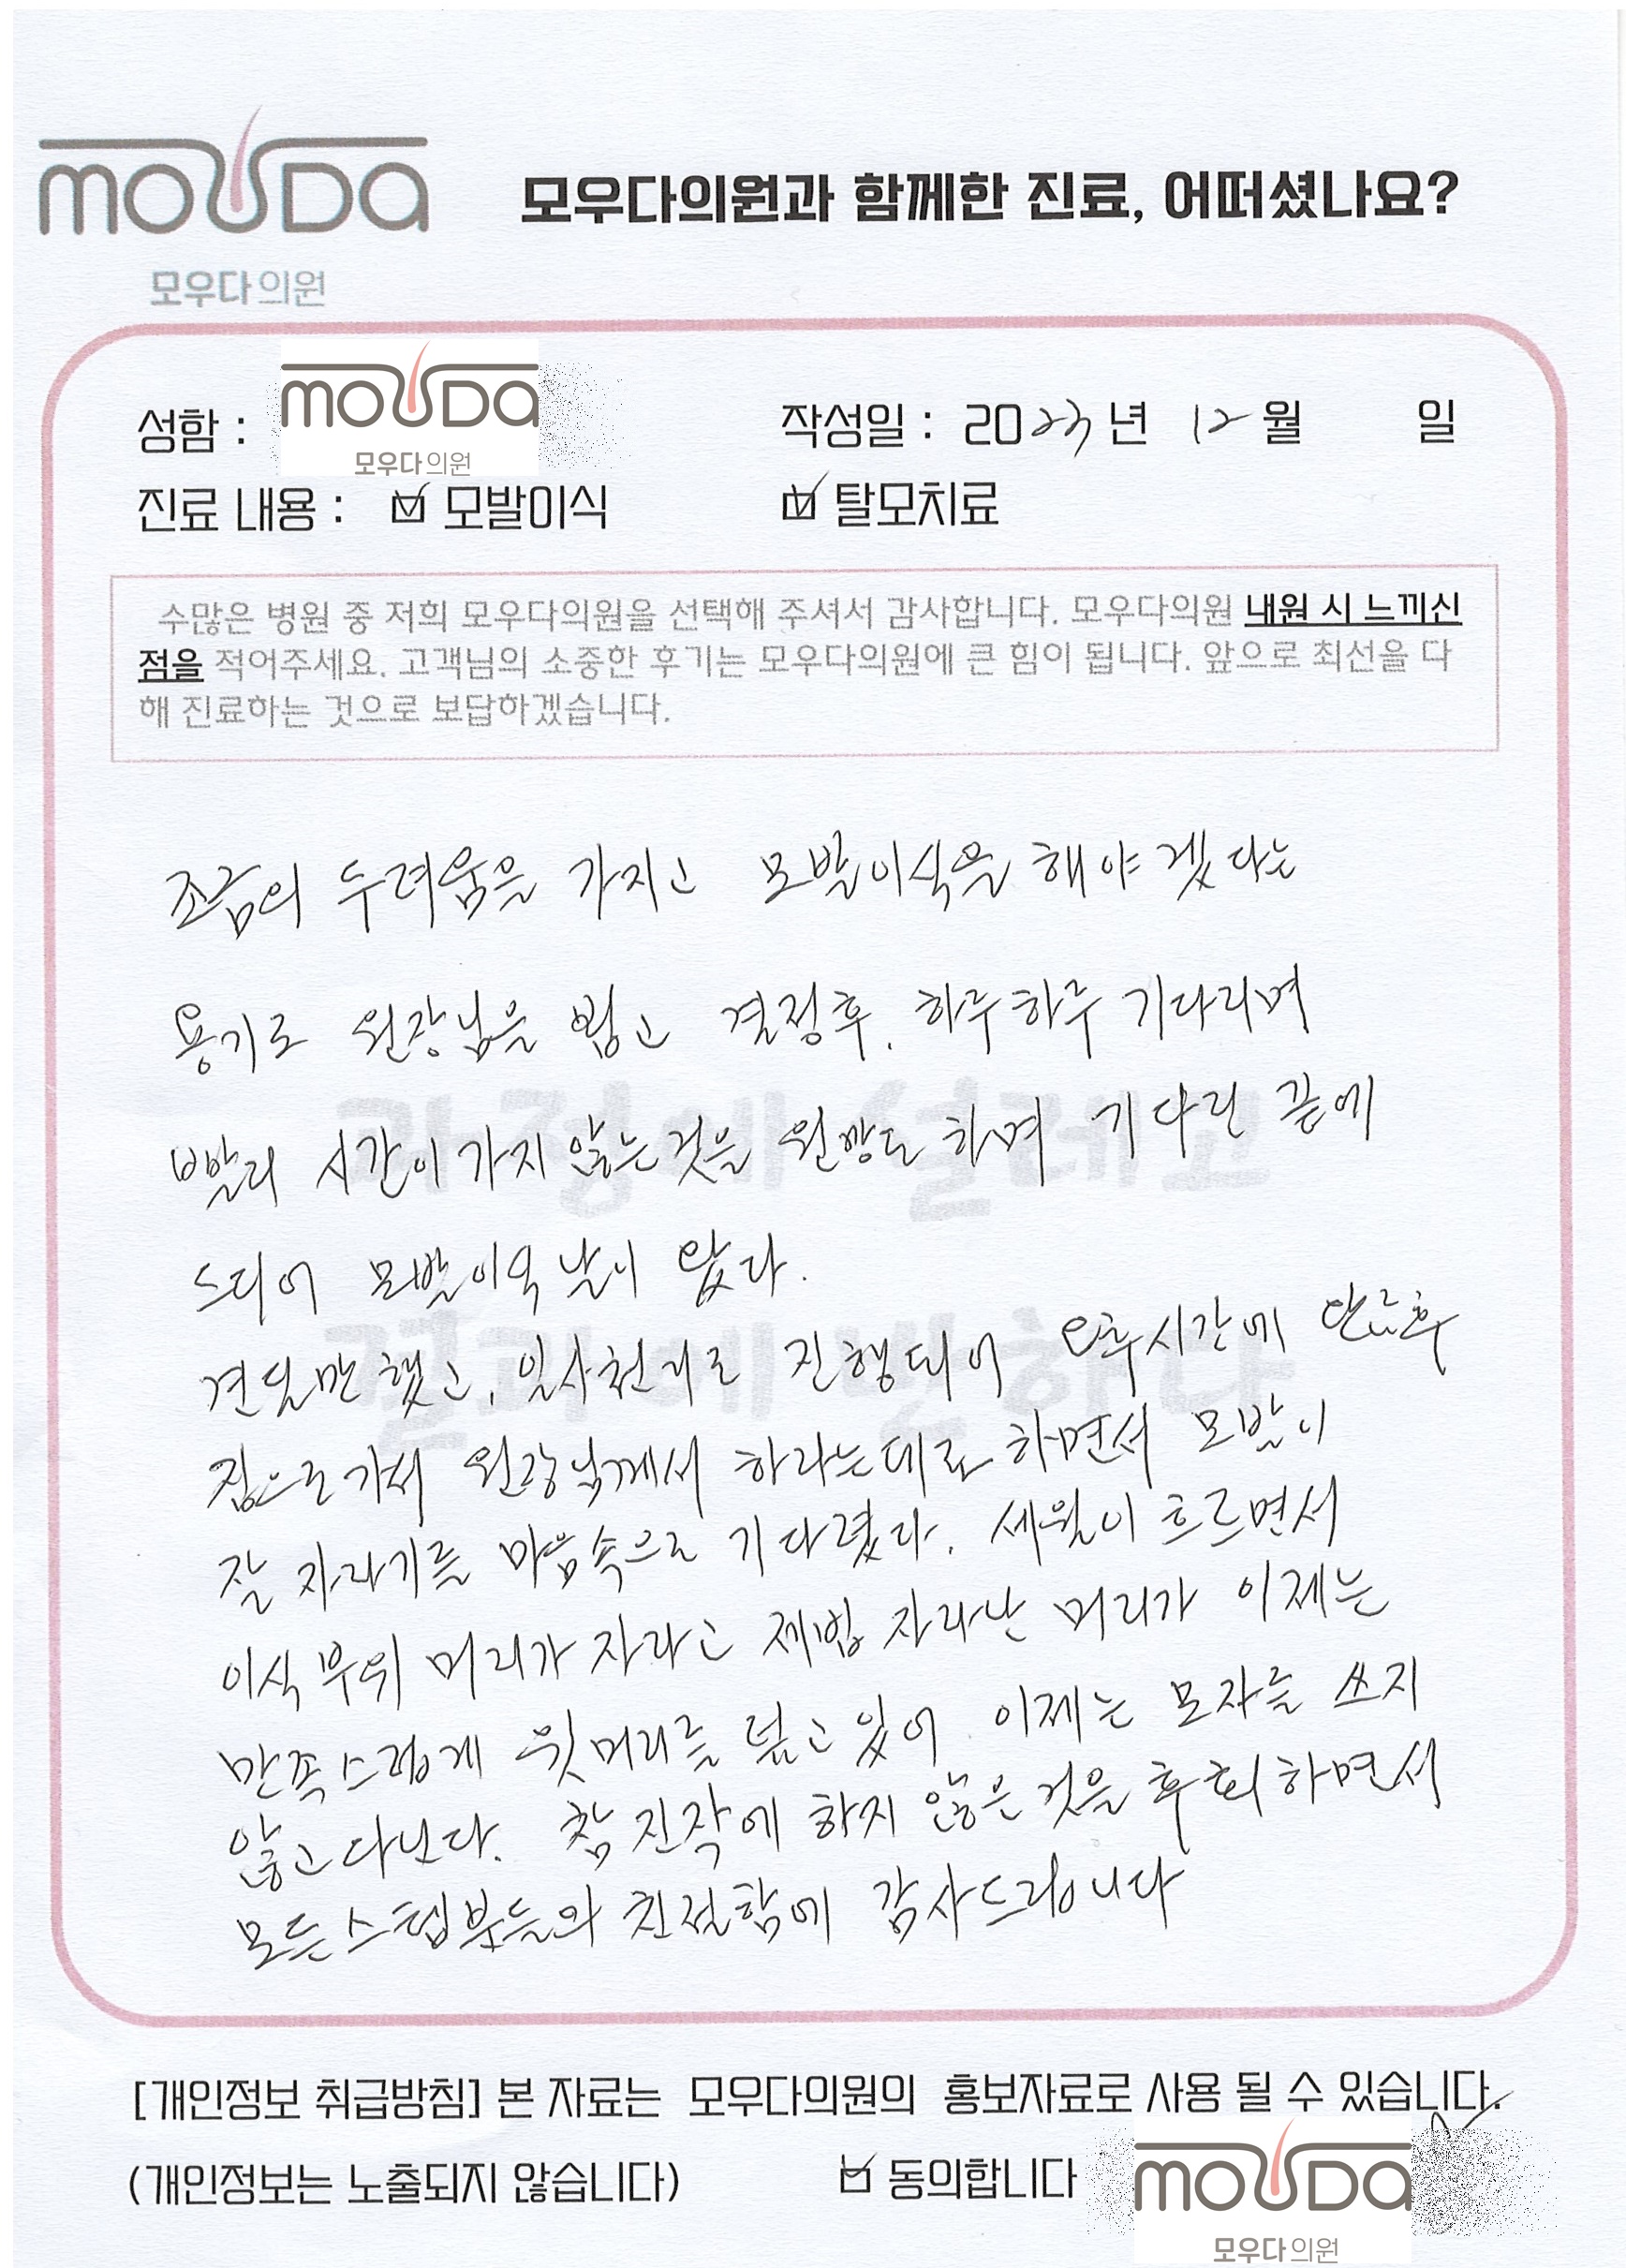 mouda
모우다의원과 함께한 진료, 어떠셨나요?
모우다의원
성함 : mouda
모우다의원
작성일 : 2023년 12월 일
진료 내용 : ☑ 모발이식 ☑ 탈모치료
수많은 병원 중 저희 모우다의원을 선택해 주셔서 감사합니다. 모우다의원 내원 시 느끼신
점을 적어주세요. 고객님의 소중한 후기는 모우다의원에 큰 힘이 됩니다. 앞으로 최선을 다
해 진료하는 것으로 보답하겠습니다.
조금의 두려움을 가지고 모발이식을 해야겠다는
용기로 원장님을 뵙고 결정후, 하루하루 기다리며
빨리 시간이 가지 않는것을 원망도 하며 기다린 끝에
드디어 모발이식 날이 왔다.
견딜만 했고, 일사천리로 진행되어 오후시간에 완료후
집으로가서 원장님께서 하라는데로 하면서 모발이
잘 자라기를 마음속으로 기다렸다. 세월이 흐르면서
이식 부위 머리가 자라고 제법 자라난 머리가 이제는
만족스럽게 윗머리를 덮고 있어 이제는 모자를 쓰지
않고 다닌다. 참 진작에 하지 않은 것을 후회하면서
모든스텝분들의 친절함에 감사드립니다
과정에 설레고
결과에 반하다
[개인정보 취급방침] 본 자료는 모우다의원의 홍보자료로 사용 될 수 있습니다.
(개인정보는 노출되지 않습니다) ☑ 동의합니다
mouda
모우다의원